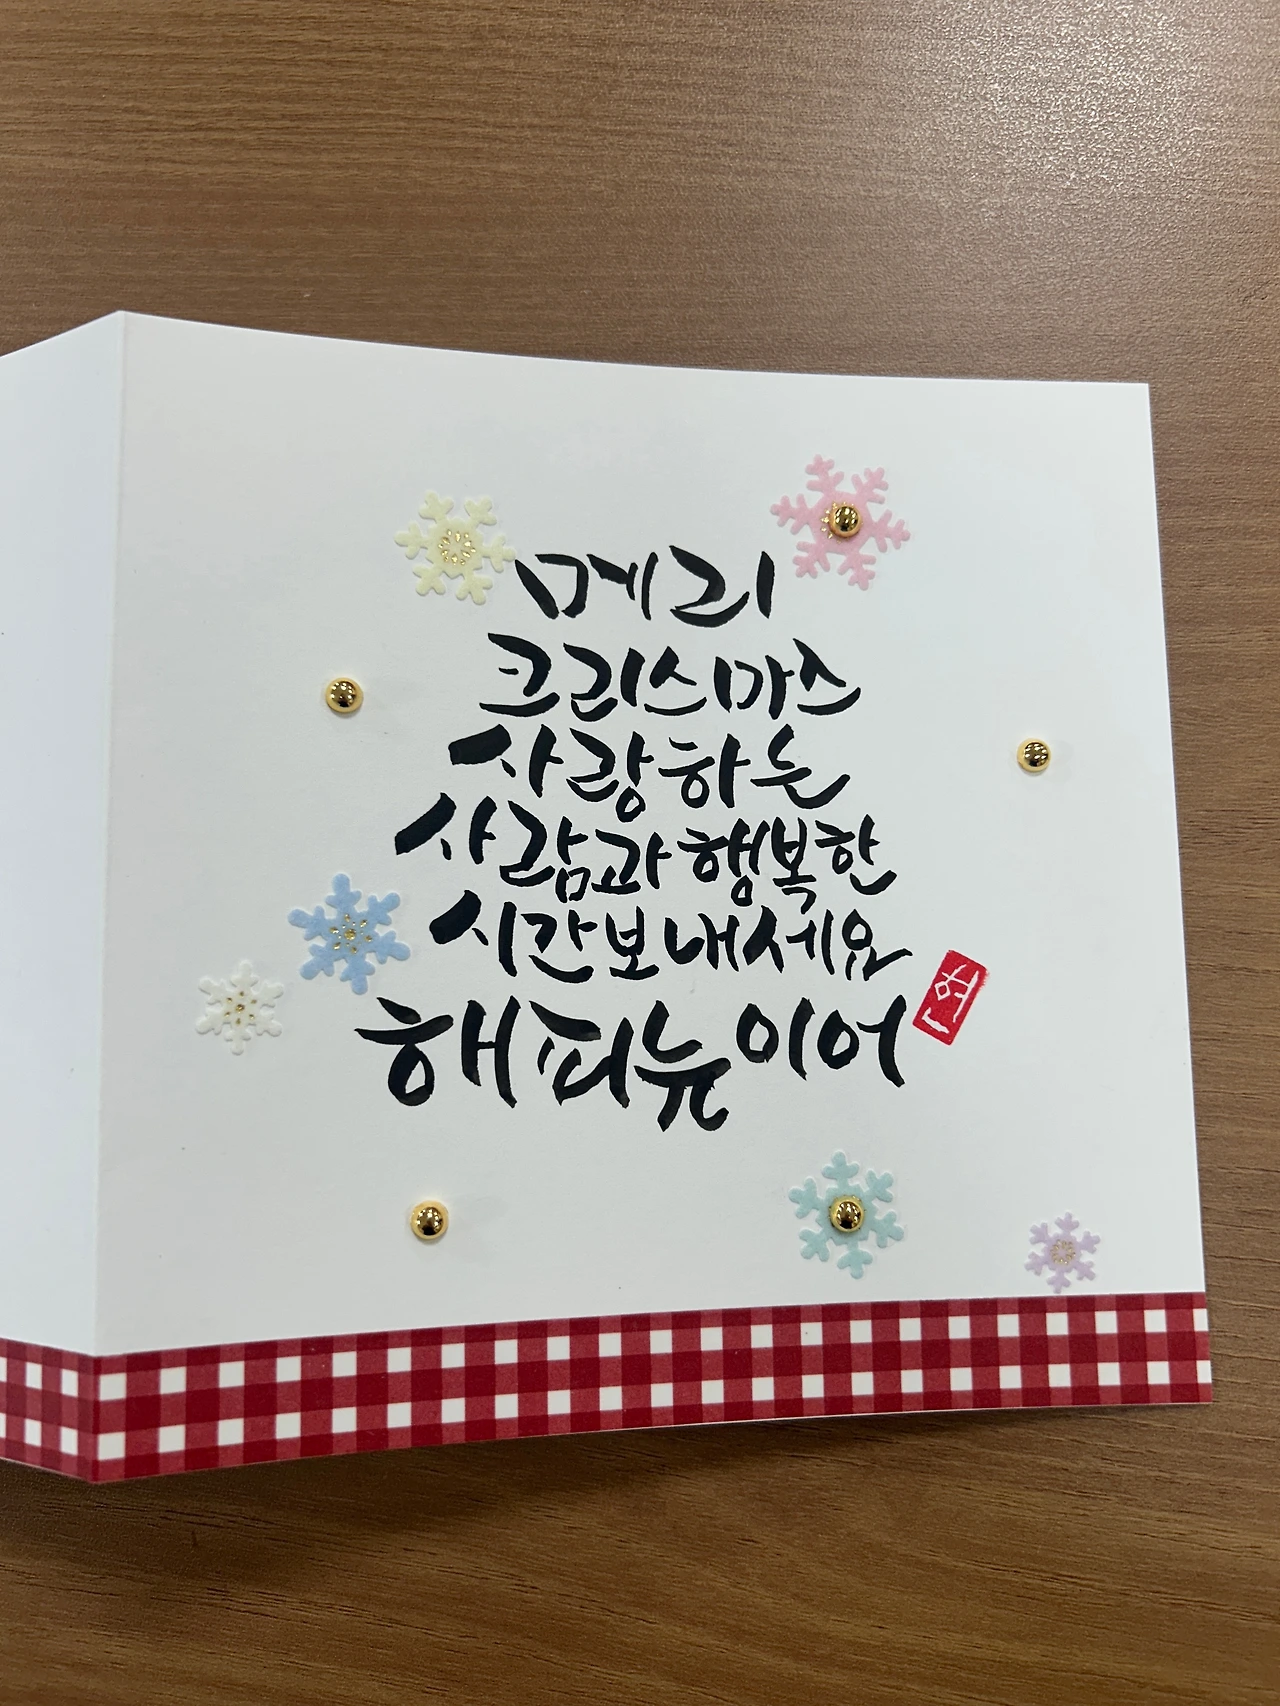 메리
크리스마스
사랑하는
사람과 행복한
시간보내세요
해피뉴이어
현